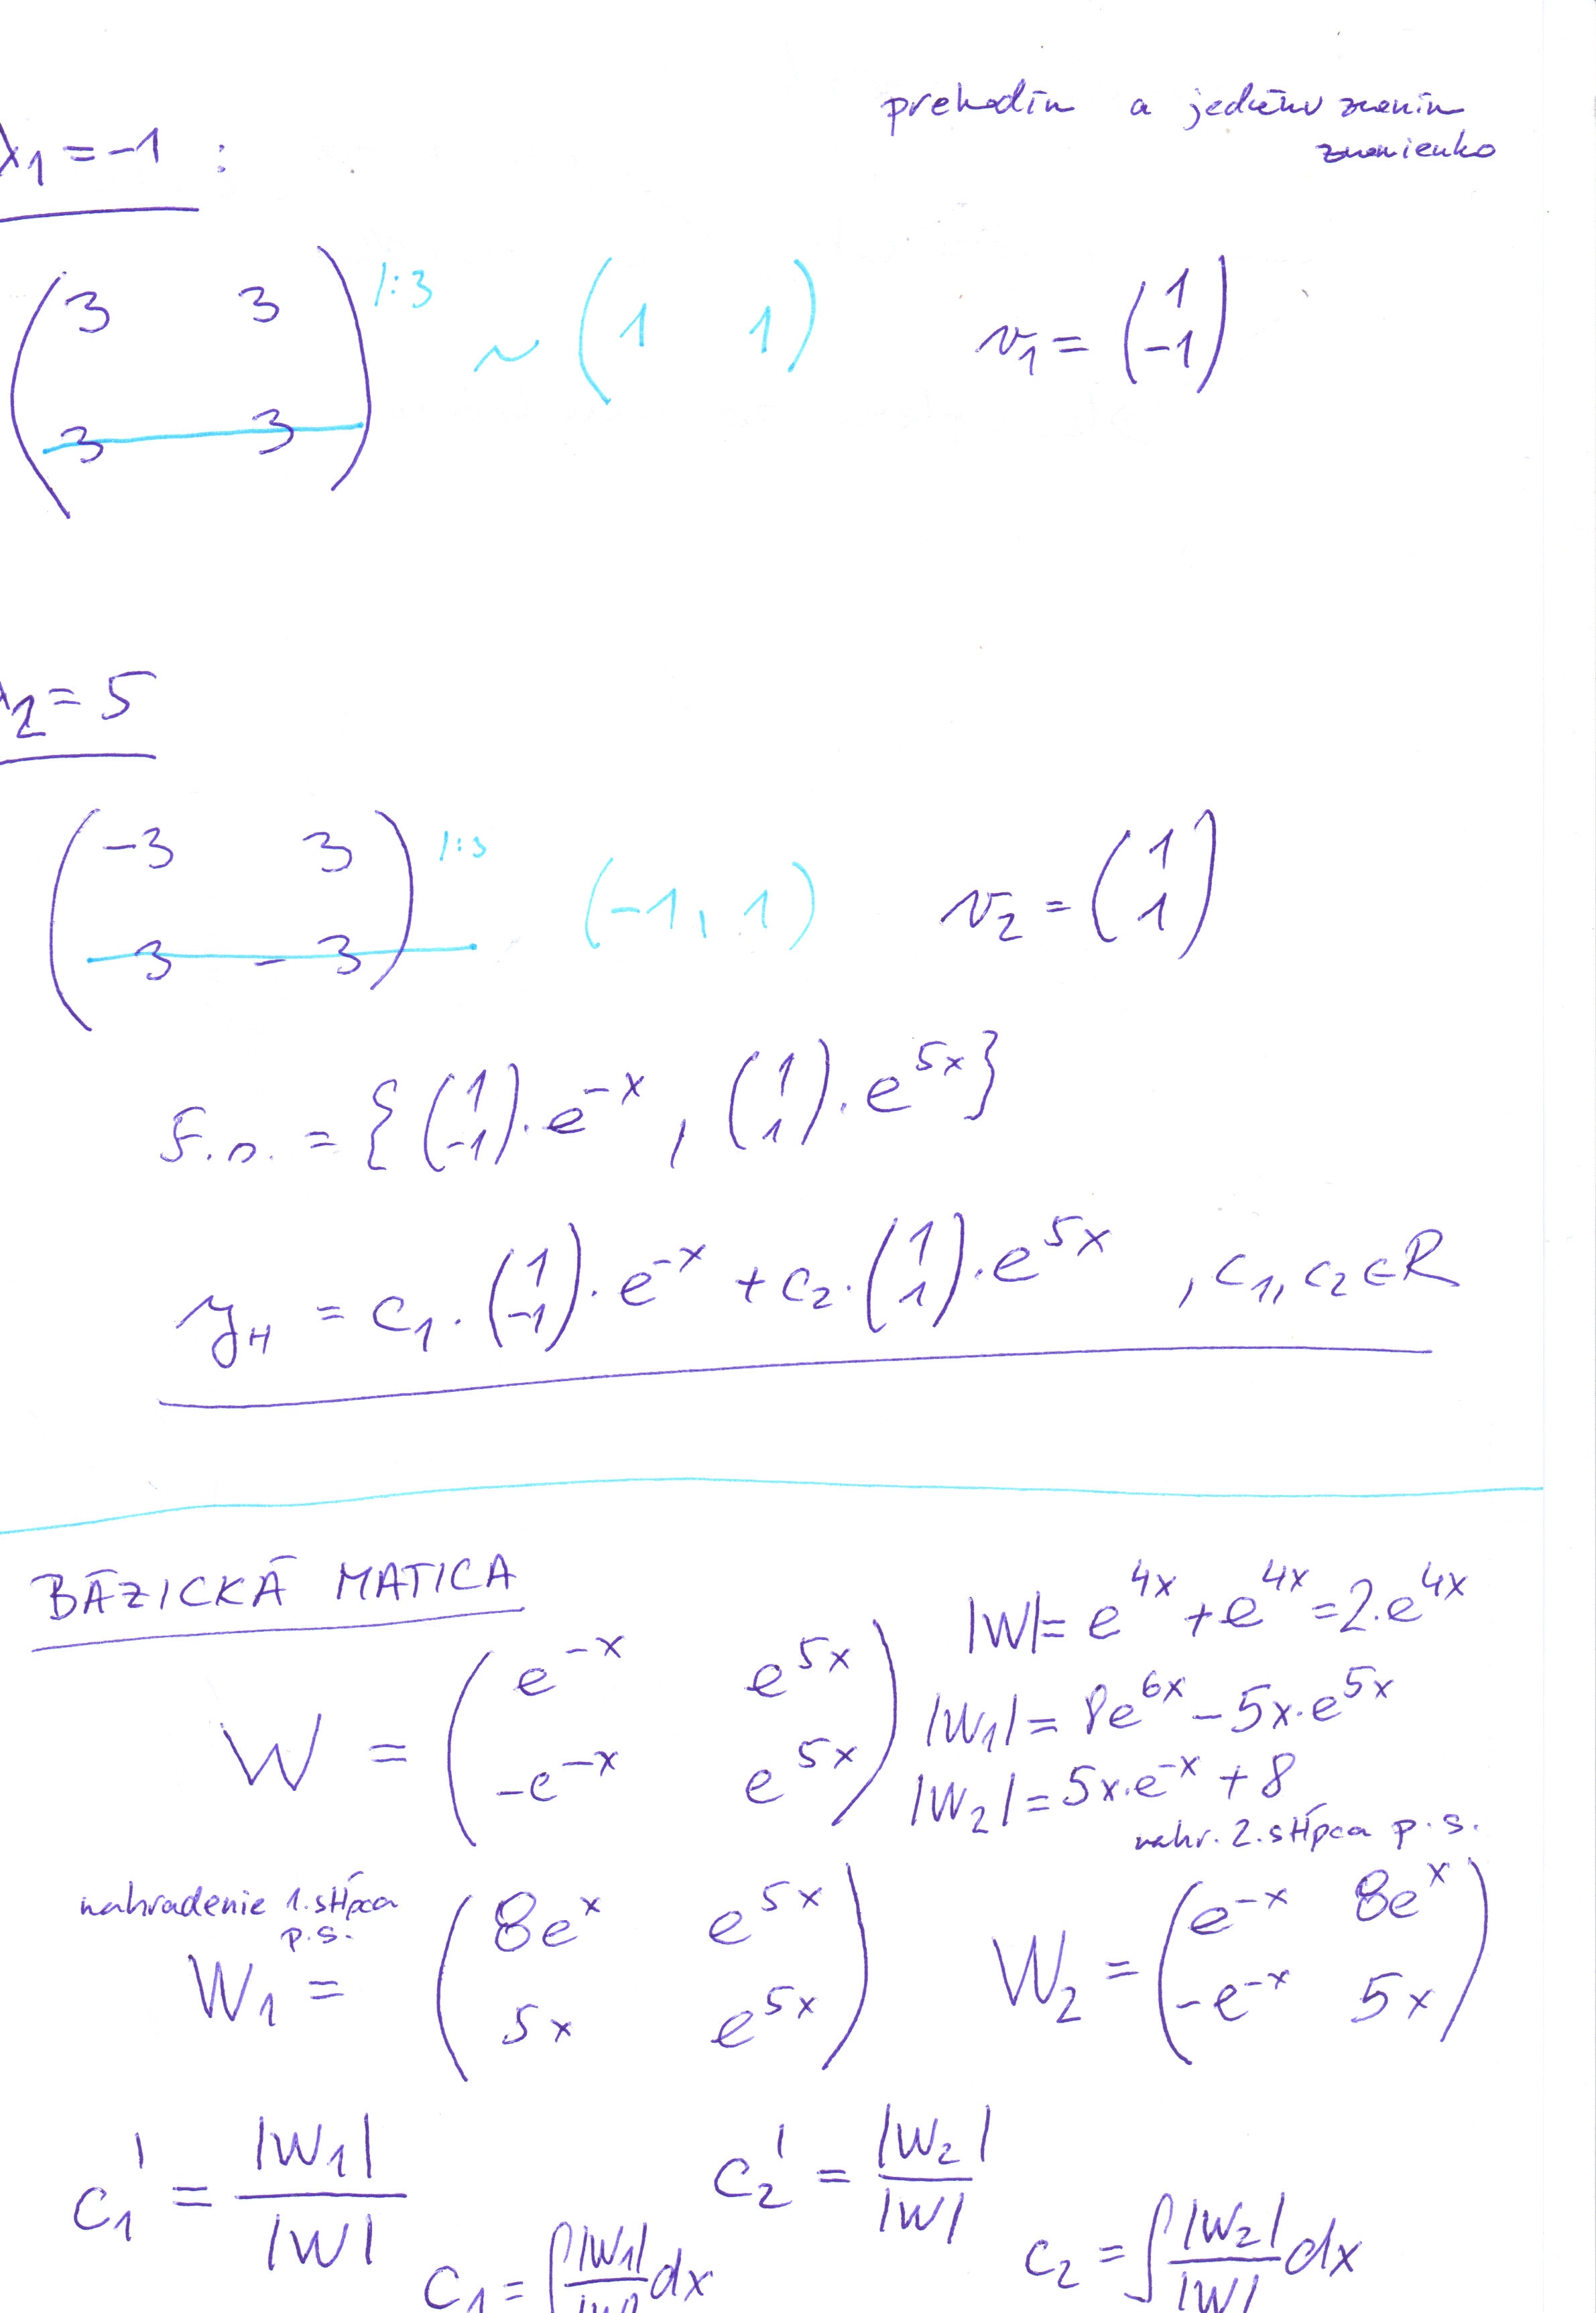 prehodím a jednému zmením
znamienko
λ1 = -1 :
( 3 3 ) /:3 ~ ( 1 1 ) v1 = ( 1
-1 )
3 3
λ2 = 5
( -3 3 ) /:3 (-1, 1) v2 = ( 1
1 )
3 - 3
F.s. = { ( 1 -1 ) . e^-x , ( 1 1 ) . e^5x }
yH = c1 . ( 1 -1 ) . e^-x + c2 . ( 1 1 ) . e^5x , c1, c2 ∈ R
BÁZICKÁ MATICA
|W| = e^4x + e^4x = 2.e^4x
W = ( e^-x e^5x
-e^-x e^5x )
|W1| = 8e^6x - 5x.e^5x
|W2| = 5x.e^-x + 8
nahr. 2. stĺpca p.s.
nahradenie 1. stĺpca
p.s.
W1 = ( 8e^x e^5x
5x e^5x )
W2 = ( e^-x 8e^x
-e^-x 5x )
c1' = |W1| / |W|
c2' = |W2| / |W|
c1 = ∫ |W1| / |W| dx
c2 = ∫ |W2| / |W| dx